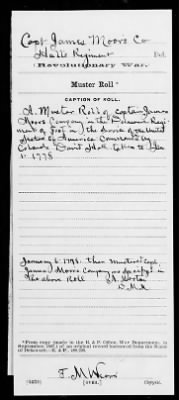 Capt. James Moors Co
Halls Regiment Del.
(Revolutionary War.)
Muster Roll*
CAPTION OF ROLL.
A Muster Roll of Captn James
Moors Company in the Delaware Regi-
ment of foot in the Service of the United
States of America Commanded by
Colonel David Hall taken to
1: 1778
January 6. 1778. then Mustered Capt.
James Moors Company as specified in
the above Roll
D. M. M.
*From copy (made in the R. & P. Office, War Department, in
of an original record borrowed from the State
of Delaware.—R. & P.
Copyist.